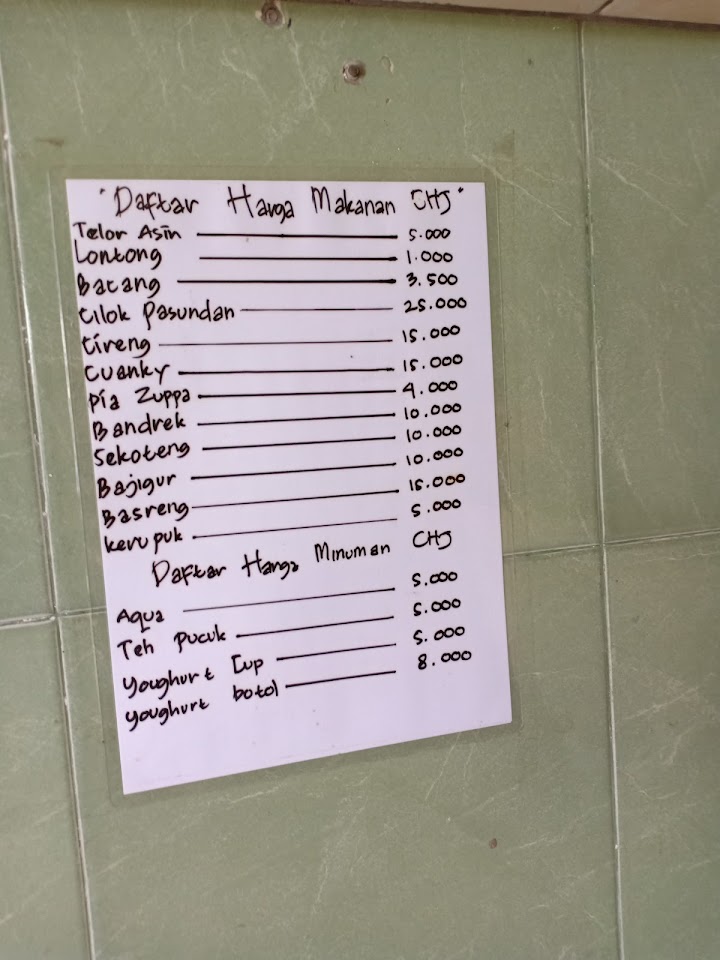 "Daftar Harga Makanan CHJ"
Telor Asin 5.000
Lontong 1.000
Bacang 3.500
Cilok Pasundan 25.000
Cireng 15.000
Cuanky 15.000
Pia Zuppa 4.000
Bandrek 10.000
Sekoteng 10.000
Bajigur 10.000
Basreng 15.000
kerupuk 5.000
Daftar Harga Minuman CHJ
Aqua 5.000
Teh Pucuk 5.000
Youghurt Cup 5.000
youghurt botol 8.000